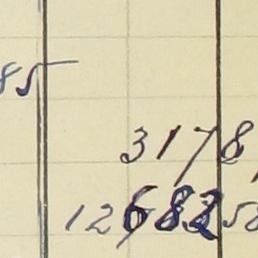 85
3178
1268258